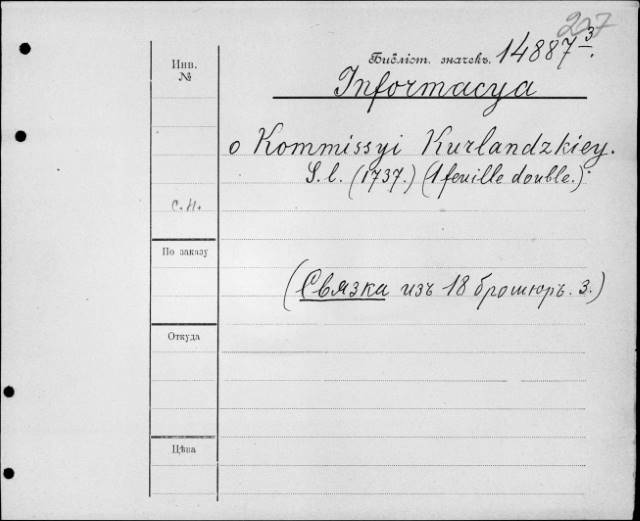 207
Инв.
№
Библіот. значекъ. 14887-3.
Informacya
o Kommissyi Kurlandzkiey.
S. l. (1737.) (1 feuille double.)
С.Н.
По заказу
(Связка изъ 18 брошюръ. 3.)
Откуда
Цѣна